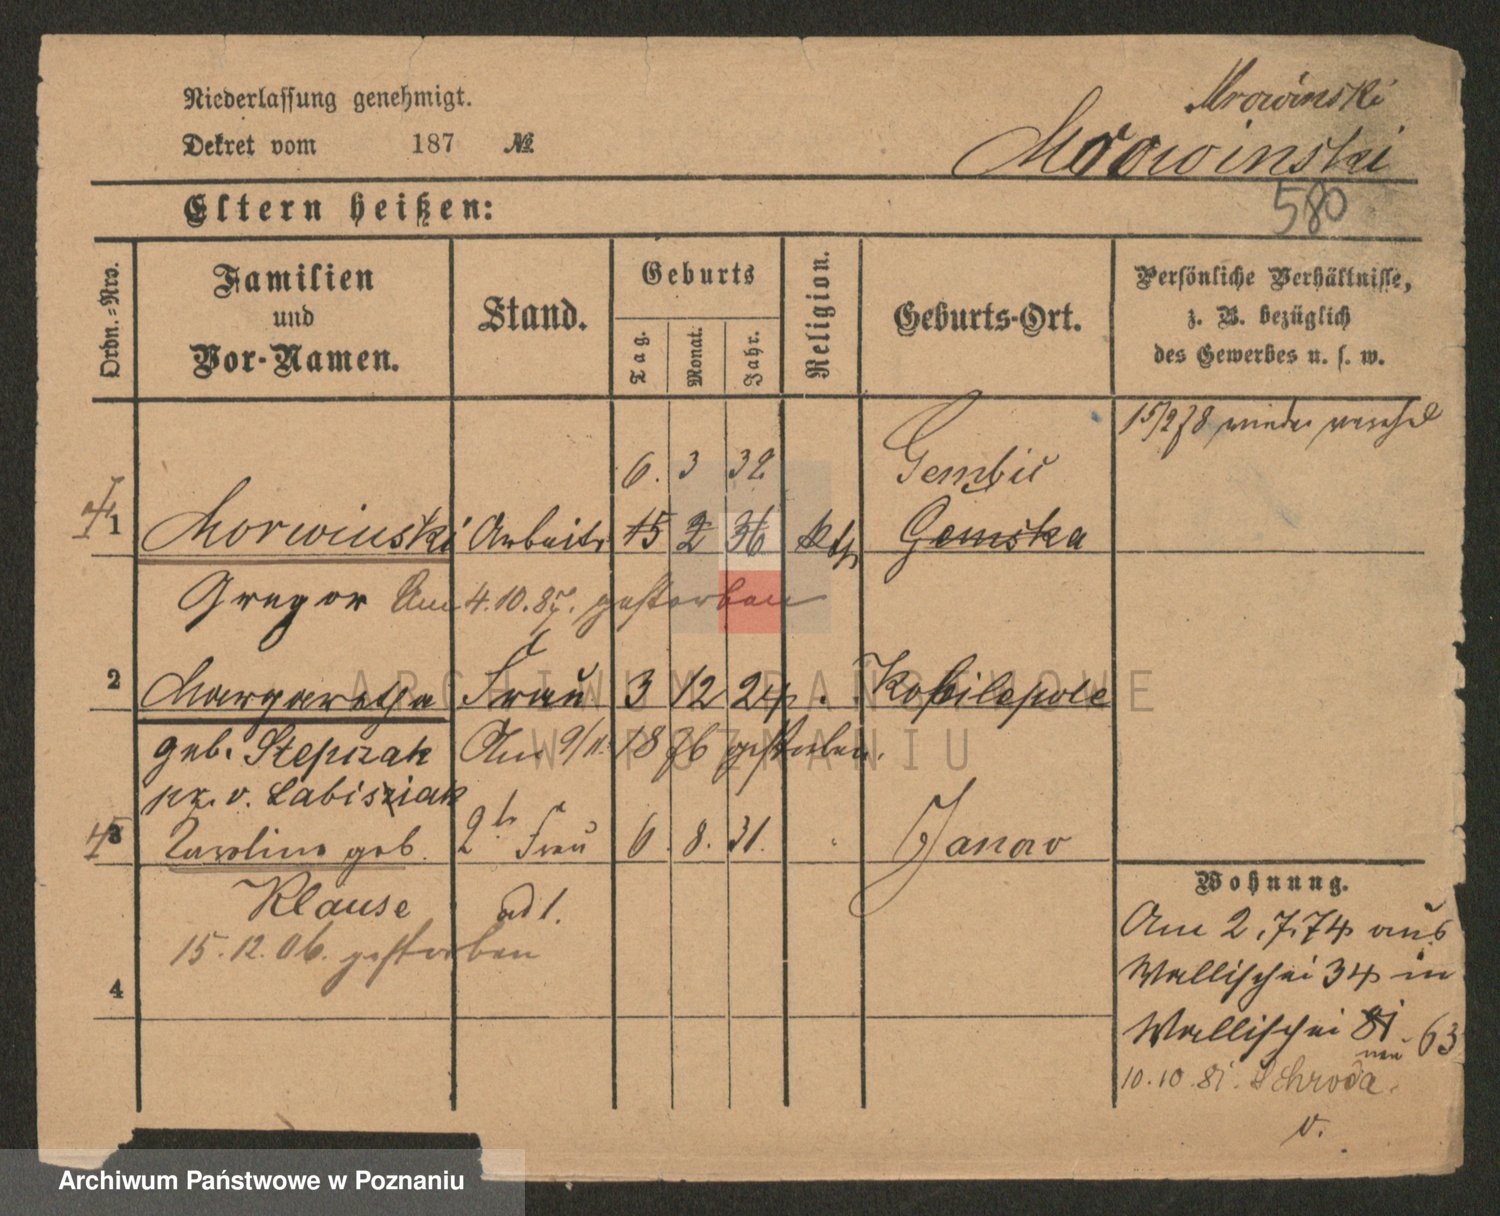 Niederlassung genehmigt.
Dekret vom 187 №
Mrowinski
Morowinski
580
Eltern heißen:
Ordn.-Nro.
Familien
und
Vor-Namen.
Stand.
Geburts
Tag.
Monat.
Jahr.
Religion.
Geburts-Ort.
Persönliche Verhältnisse,
z. B. bezüglich
des Gewerbes u. s. w.
15/2 78 wieder
6. 3 32 Gembic
1 Morwinski Arbeitr 15 2 36 kth Gemska
Gregor Am 4.10.87. gestorben
2 Margaretha Frau 3 12 24 . Kobilepole
geb. Stepczak Am 9/11. 1876 gestorben.
pr. v. Labisziak
3 Karoline geb. 2te Frau 6. 8. 31. Janow
Klause ad 1.
15.12.06. gestorben
4
Wohnung.
Am 2.7.74 aus
Wallischei 34 in
Wallischei 81 63
neu
10.10.81. Schroda.
v.
ARCHIWUM PAŃSTWOWE
W POZNANIU
Archiwum Państwowe w Poznaniu